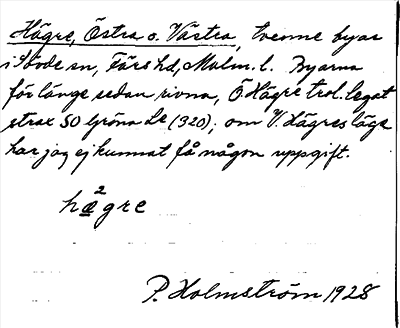 Hägre, Östra o. Västra, tvenne byar
i Sövde sn, Färs hd, Malm. l. Byarna
för länge sedan rivna, Ö Hägre trol. legat
strax SO Gröna (320); om V. Hägres läge
har jag ej kunnat få någon uppgift.
2
hægre
P. Holmström 1928